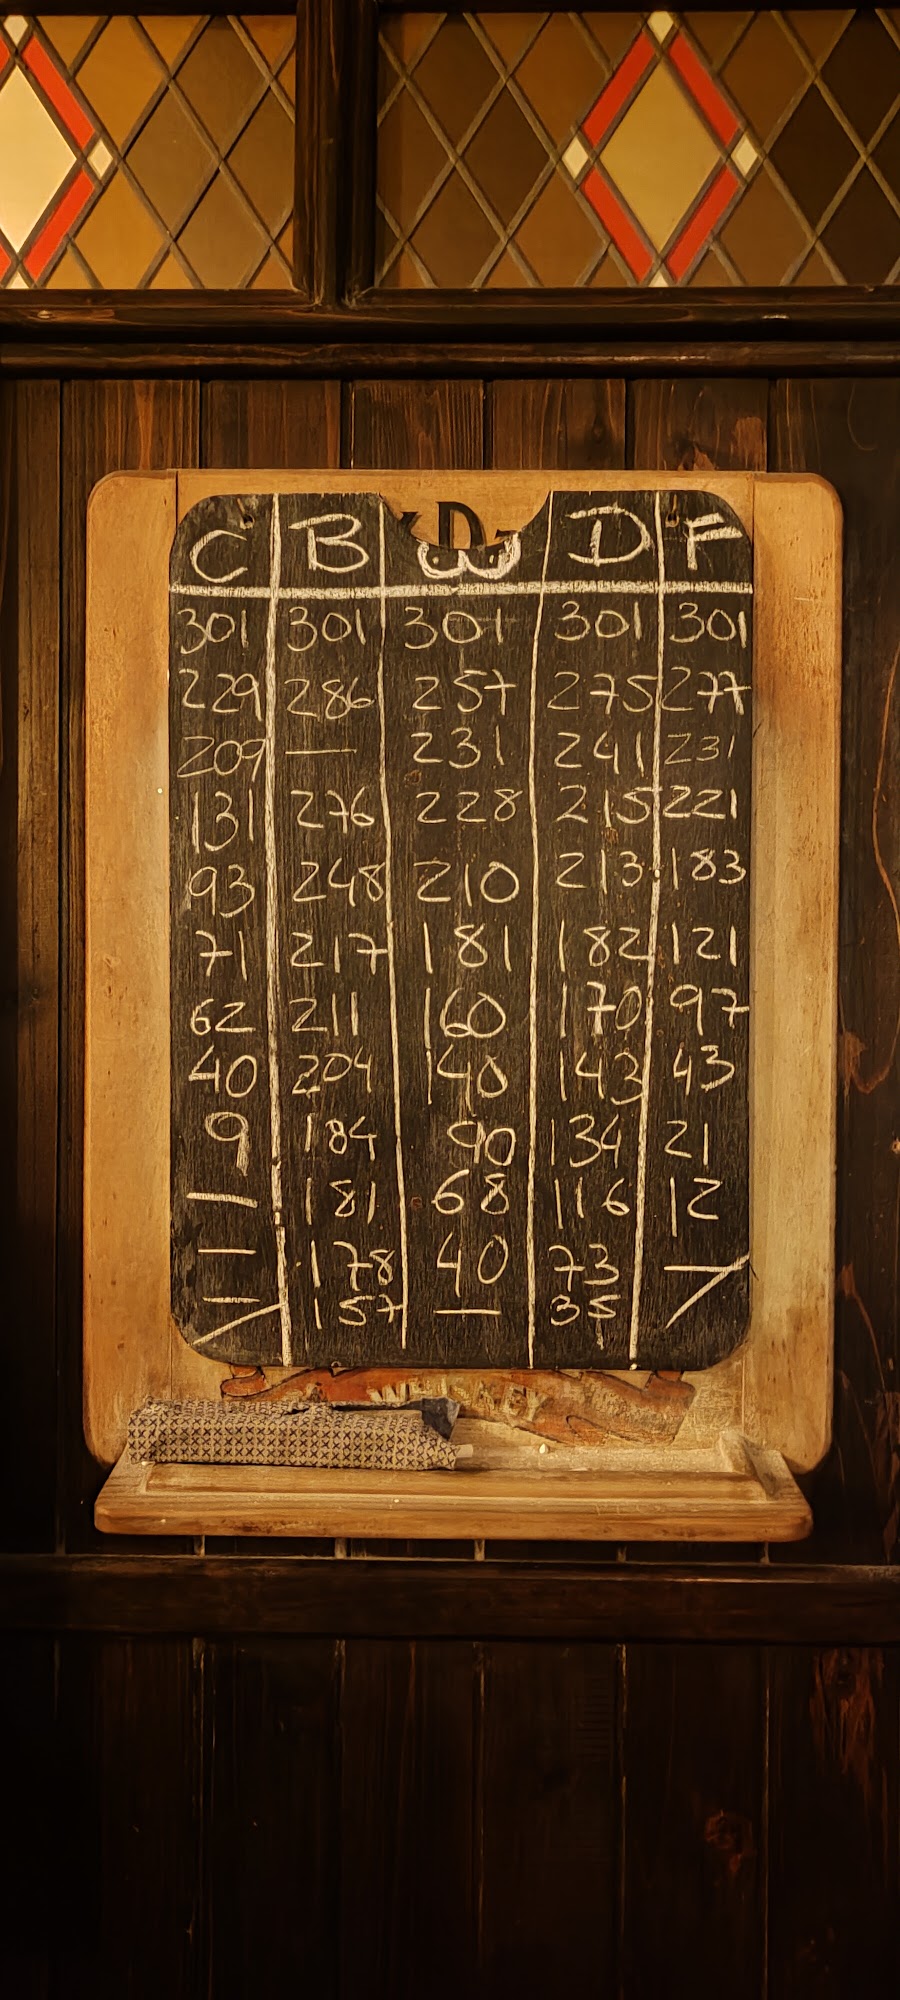 C B W D F
301 301 301 301 301
229 286 257 275 277
209 — 231 241 231
131 276 228 215 221
93 248 210 213 183
71 217 181 182 121
62 211 160 170 97
40 204 140 143 43
9 184 90 134 21
— 181 68 116 12
— 178 40 73 —
— 157 — 35
WHISKEY